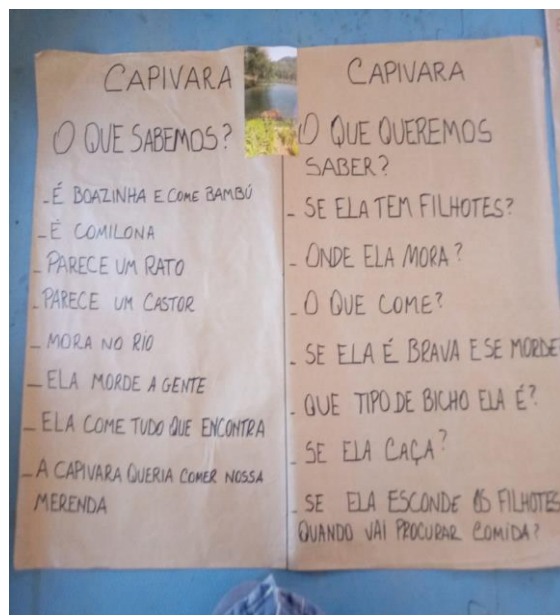 CAPIVARA
O QUE SABEMOS?
- É BOAZINHA E COME BAMBÚ
- É COMILONA
- PARECE UM RATO
- PARECE UM CASTOR
- MORA NO RÍO
- ELA MORDE A GENTE
- ELA COME TUDO QUE ENCONTRA
- A CAPIVARA QUERIA COMER NOSSA
MERENDA
CAPIVARA
O QUE QUEREMOS
SABER?
- SE ELA TEM FILHOTES?
- ONDE ELA MORA?
- O QUE COME?
- SE ELA É BRAVA E SE MORDE
- QUE TIPO DE BICHO ELA É?
- SE ELA CAÇA?
- SE ELA ESCONDE OS FILHOTES
QUANDO VAI PROCURAR COMIDA?